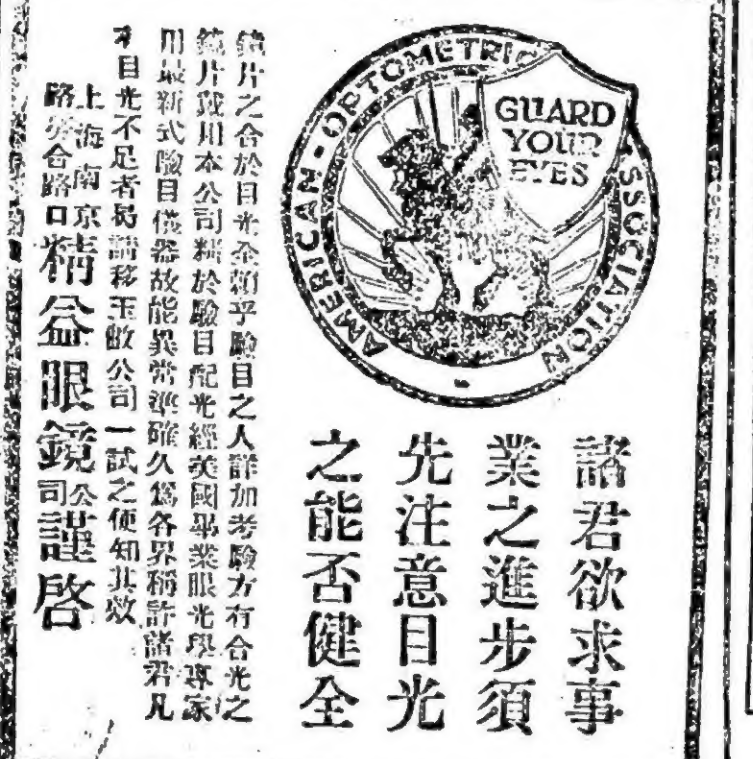 AMERICAN - OPTOMETRIC ASSOCIATION
GUARD
YOUR
EYES
諸君欲求事
業之進步須
先注意目光
之能否健全
鏡片之合於目光全賴乎驗目之人詳加考驗方有合光之
鏡片戴用本公司精於驗目配光經美國畢業眼光學專家
用最新式驗目儀器故能異常準確久爲各界稱許諸君凡
目光不足者易請移玉敝公司一試之便知其效
上海南京
路 合路口
精益眼鏡公司謹啓